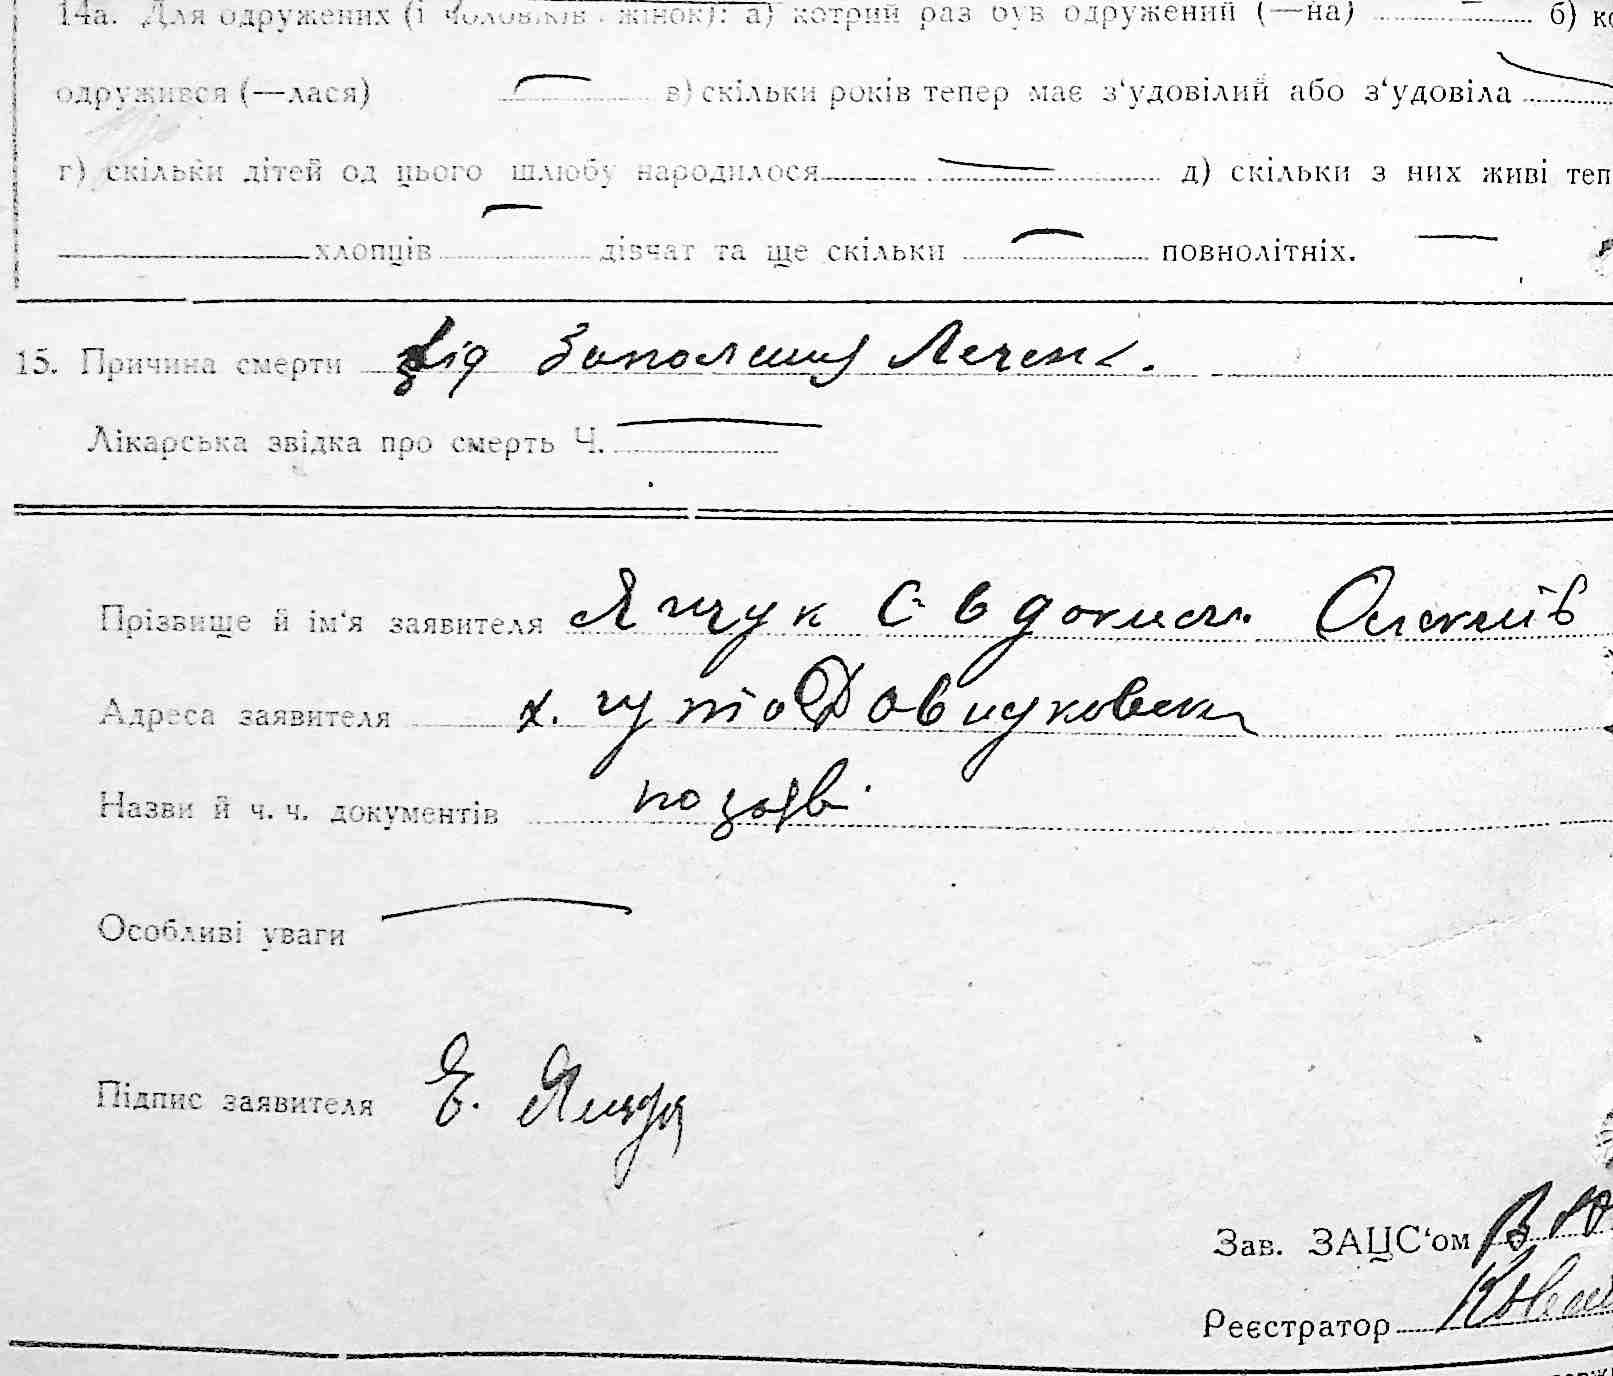 14а. Для одружених (і чоловіків і жінок): а) котрий раз був одружений (—на) б)
одружився (—лася) в) скільки років тепер має з'удовілий або з'удовіла
г) скільки дітей од цього шлюбу народилося д) скільки з них живі теп
хлопців дівчат та ще скільки повнолітніх.
15. Причина смерти Від Запаления Лечень.
Лікарська звідка про смерть Ч.
Прізвище й ім'я заявителя Ящук Євдоким
Адреса заявителя х.
Назви й ч. ч. документів по заяві
Особливі уваги
Підпис заявителя Е. Ящук
Зав. ЗАЦС'ом
Реєстратор